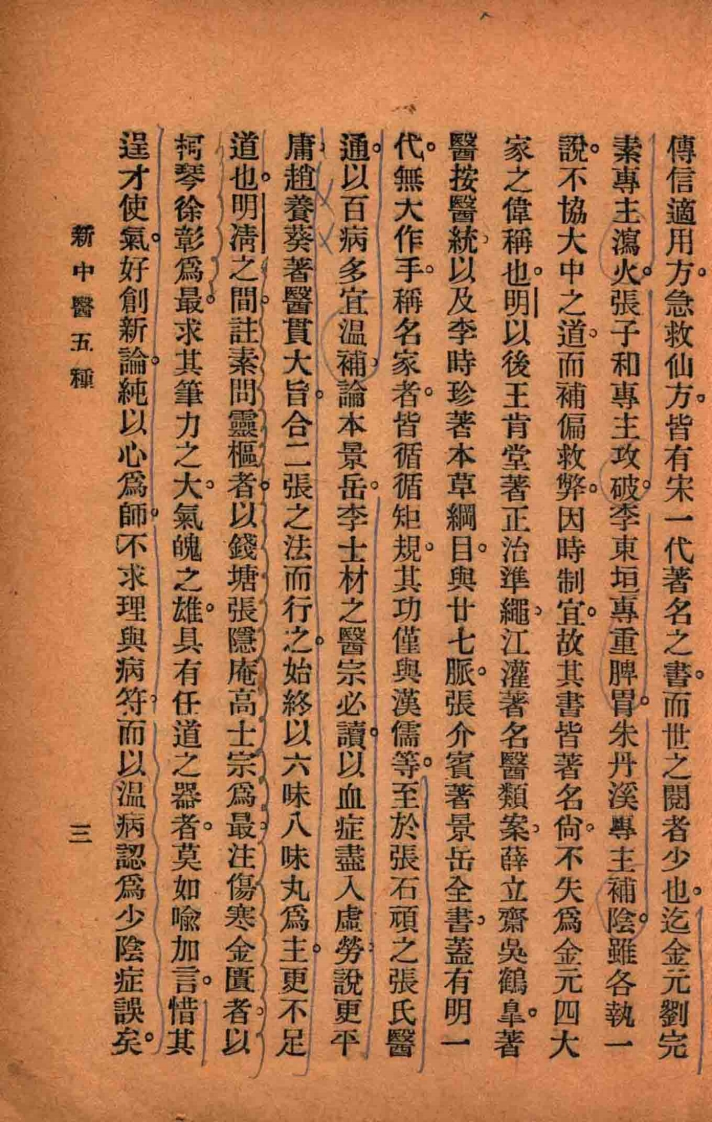 傳信適用方。急救仙方。皆有宋一代著名之書。而世之閱者少也。迄金元劉完
素專主瀉火。張子和專主攻破。李東垣專重脾胃。朱丹溪專主補陰。雖各執一
說。不協大中之道。而補偏救弊。因時制宜。故其書皆著名。尙不失爲金元四大
家之偉稱也。明以後王肯堂著正治準繩。江灌著名醫類案。薛立齋吳鶴皐。著
醫按醫統。以及李時珍著本草綱目。與廿七脈。張介賓著景岳全書。蓋有明一
代。無大作手。稱名家者。皆循循矩規。其功僅與漢儒等。至於張石頑之張氏醫
通。以百病多宜溫補。論本景岳。李士材之醫宗必讀。以血症盡入虛勞。說更平
庸。趙養葵著醫貫大旨。合二張之法而行之。始終以六味八味丸爲主。更不足
道也。明淸之間。註素問靈樞者。以錢塘張隱庵高士宗爲最。注傷寒金匱者。以
柯琴徐彰爲最。求其筆力之大。氣魄之雄。具有任道之器者。莫如喩加言。惜其
逞才使氣。好創新論。純以心爲師。不求理與病符。而以溫病認爲少陰症誤矣。
新中醫五種
三